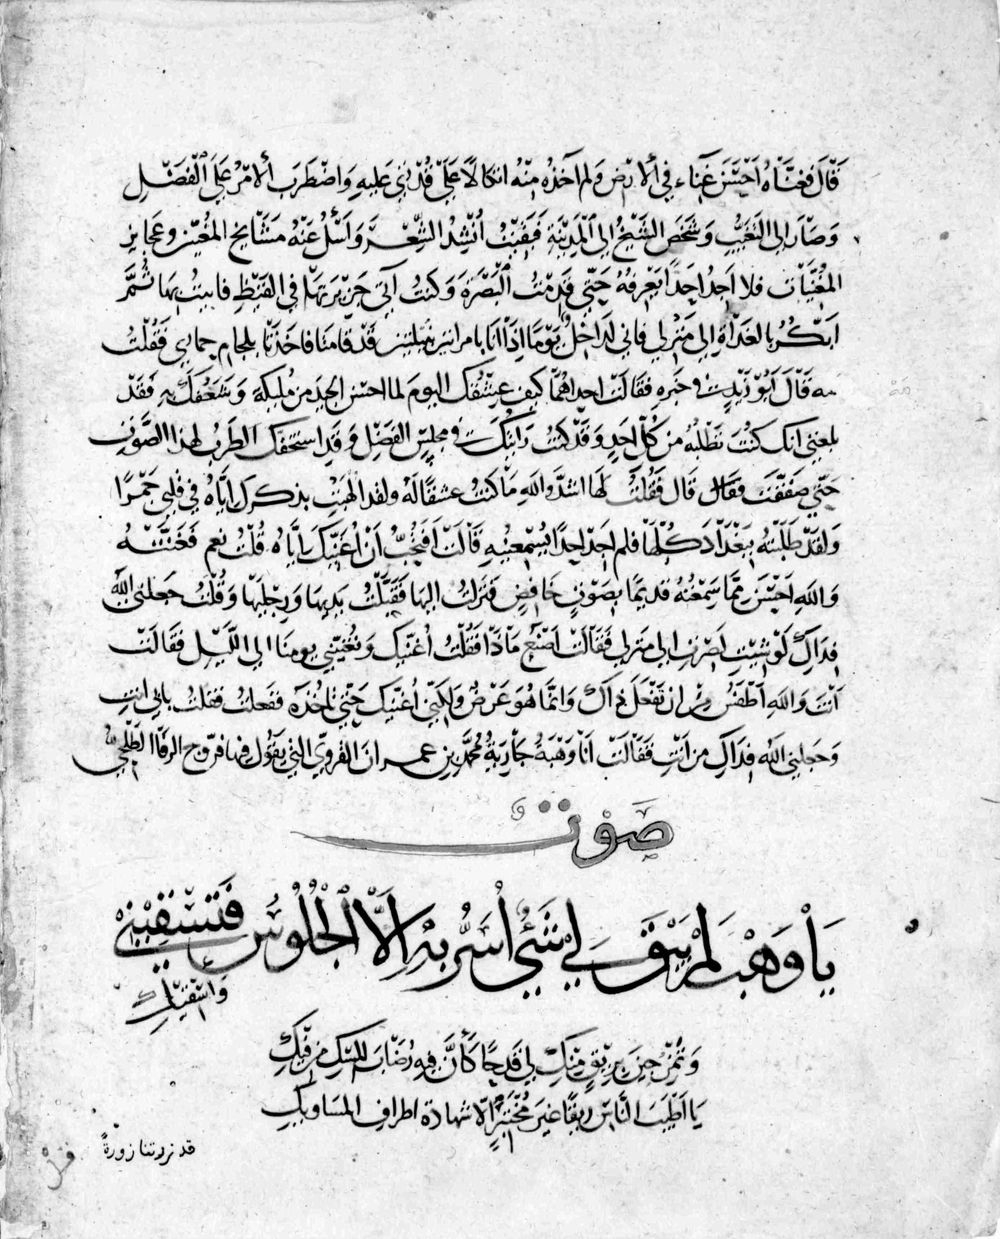 قَالَ فَغَنَّاهُ اَحْسَنَ غِنَاء في الارض ولم آخذه مِنْهُ اتكالاً عَلَى قُدْرَتي عَليهِ وَاضْطَرَبَ الامْرُ عَلى الْفَضْلِ
وَصَارَ اِلى التَغَيُّبِ وشَخَصَ الشَيْخُ اِلى المَدِينَةِ فَبَقِيْتُ اُنْشِدُ الشِّعْرَ وَاَسْأَلُ عَنْهُ مَشَايخ المُغَنِّينَ وعجايز
المُغَنِّيَات فلا اَجِدُ اَحَداً يَعْرِفُهُ حَتّى قَدِمْتُ البَصْرَةَ وَكنتُ آتي جَزِيْرَتَهَا في القَيْظِ فابيتُ بِهَا ثُمَّ
ابَكِّرُ بالغَدَاةِ اِلى مَنْزِلي فاني لَدَاخِلٌ يَوْمَاً اِذَا انَا بامراتين نبيلتين قَدْ قَامَتَا فاخَذَتَا بلجَامِ حِمَاري فَقُلْتُ
مه قَالَ اَبُوْ زَيْدٍ في خَبَرِه فقالَتْ احداهُمَا كيف عِشْقُك اليومَ لما احْسَن الجِيدَ من مُليكَة وَشَغَفُكَ بِهِ فَقَدْ
بلغني انك كنْتَ تَطْلُبُه من كُلِّ اَحَدٍ وَقَدْ كنتُ رَايتُكَ في مجْلِسِ الفَضْلِ وَقَدِ استخفك الطَرَبُ لهذا الصَّوْتِ
حَتّى صَفَقْتَ فقالَ قال فَقُلتُ لَهَا اشَدَّ وَاللهِ مَا كنتُ عشقًا لَهُ ولقد الهَبْتِ بذكركِ اِيَّاهُ في قلبي جَمْرًا
وَلقَدْ طَلَبْتُهُ بِبَغْدَادَ كُلِّهَا فلم اَجِدْ اَحدًا يُسْمِعنيهِ قَالَتْ اَفَتُحِبُّ اَنْ اُغَنِّيَكَ اِيَّاهُ قُلْتُ نعم فَغَنَّتْهُ
وَاللهِ اَحْسَن مِمَّا سَمِعْتُهُ قديمًا بِصَوْتٍ خَافِضٍ فَنَزَلْتُ اليْهَا فَقَبَّلْتُ يَدِيهَا وَرِجْلَيْهَا وَقُلْتُ جَعلني الله
فِدَاكِ لَوْ شِيْتِ لَصِرْتِ الى مَنزلي فَقَالَتْ اَصْنَع مَاذَا فقُلْتُ اُغَنِّيكِ وَتُغَنِّيني يومنا الى اللَّيْلِ فقالَتْ
اَنْتَ وَاللهِ اَطْفَسُ مِنْ ان تَفْعَلَ ذاكَ وَانَّما هُوَ عَرْضٌ وَلكِنِّي اُغَنِّيك حَتّى تاخُذَهُ ففعلتْ فقلتُ بابي انتِ
وَجَعلني اللهُ فِدَاكِ مَن اَنْتِ فَقَالَتْ اَنَا وَهْبَةُ جَارِيَةُ مُحَمَّدِ بن عمران القَرَويّ التي يَقُولُ فيها فرّوج الرفّا الطَلْحِيّ
صَوْتٌ
يَا وَهْبَ لَمْ يَبْقَ لِي شَيْءٌ اُسَرُّ بِهِ اِلاَّ الجُلُوْسُ فَتَسْقِيْنِيْ
وَاَسْقِيْكِ
وَتُمْزَجِينَ بِرِيْقٍ مِنْكِ لي قَدَحًا كَاَنَّ فيه رُضَابَ المسْكِ من فِيْكِ
يَا اَطْيَبَ النَّاسِ رِيقًا غيرَ مُخْتَبَرٍ اِلاَّ شهادَةُ اطرافِ المسَاويكِ
قد زرتنا زورةً